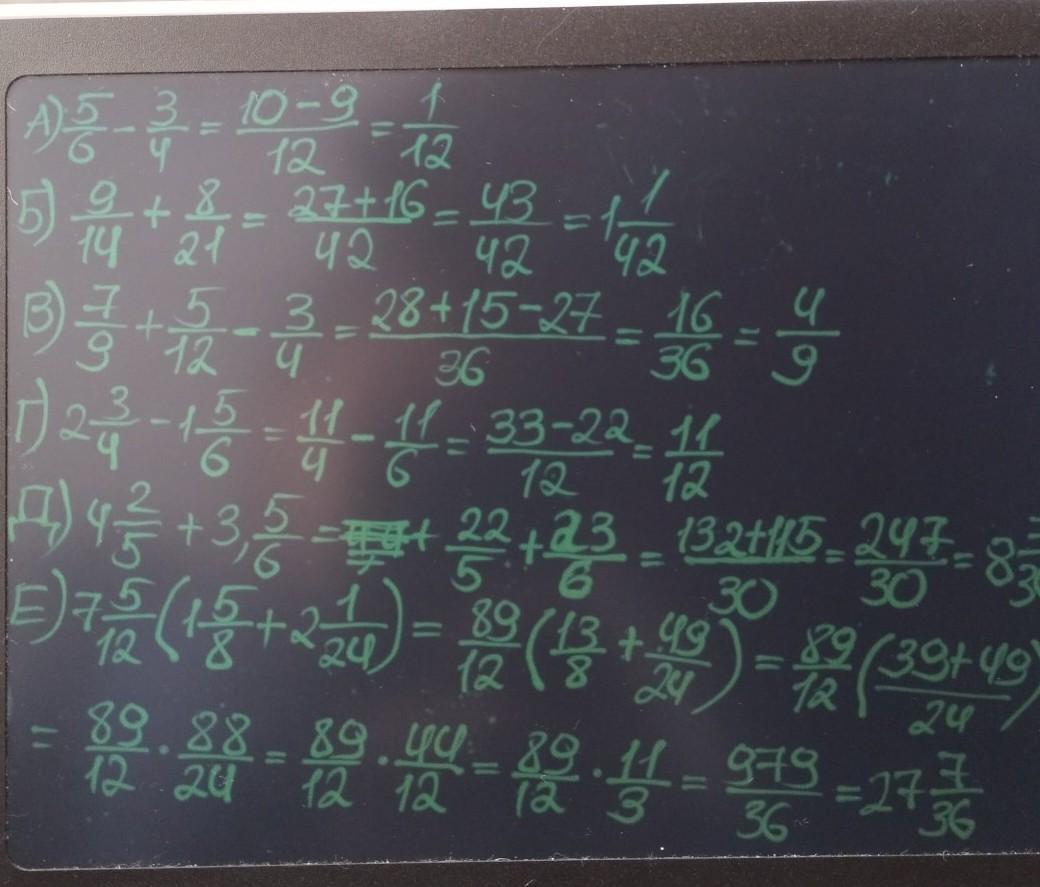 А) 5/6 - 3/4 = (10-9)/12 = 1/12
Б) 9/14 + 8/21 = (27+16)/42 = 43/42 = 1 1/42
В) 7/9 + 5/12 - 3/4 = (28+15-27)/36 = 16/36 = 4/9
Г) 2 3/4 - 1 5/6 = 11/4 - 11/6 = (33-22)/12 = 11/12
Д) 4 2/5 + 3, 5/6 = + 22/5 + 23/6 = (132+115)/30 = 247/30 = 8
Е) 7 5/12 (1 5/8 + 2 1/24) = 89/12 (13/8 + 49/24) = 89/12 ((39+49)/24)
= 89/12 · 88/24 = 89/12 · 44/12 = 89/12 · 11/3 = 979/36 = 27 7/36